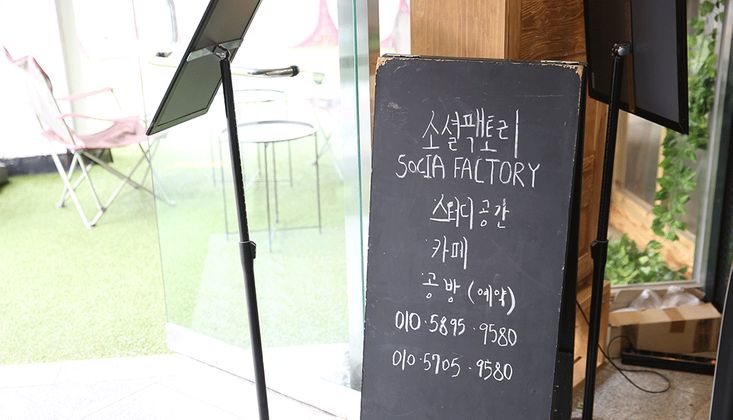 소셜팩토리
SOCIA FACTORY
스터디 공간
카페
공방 (예약)
010·5895·9580
010·5705·9580